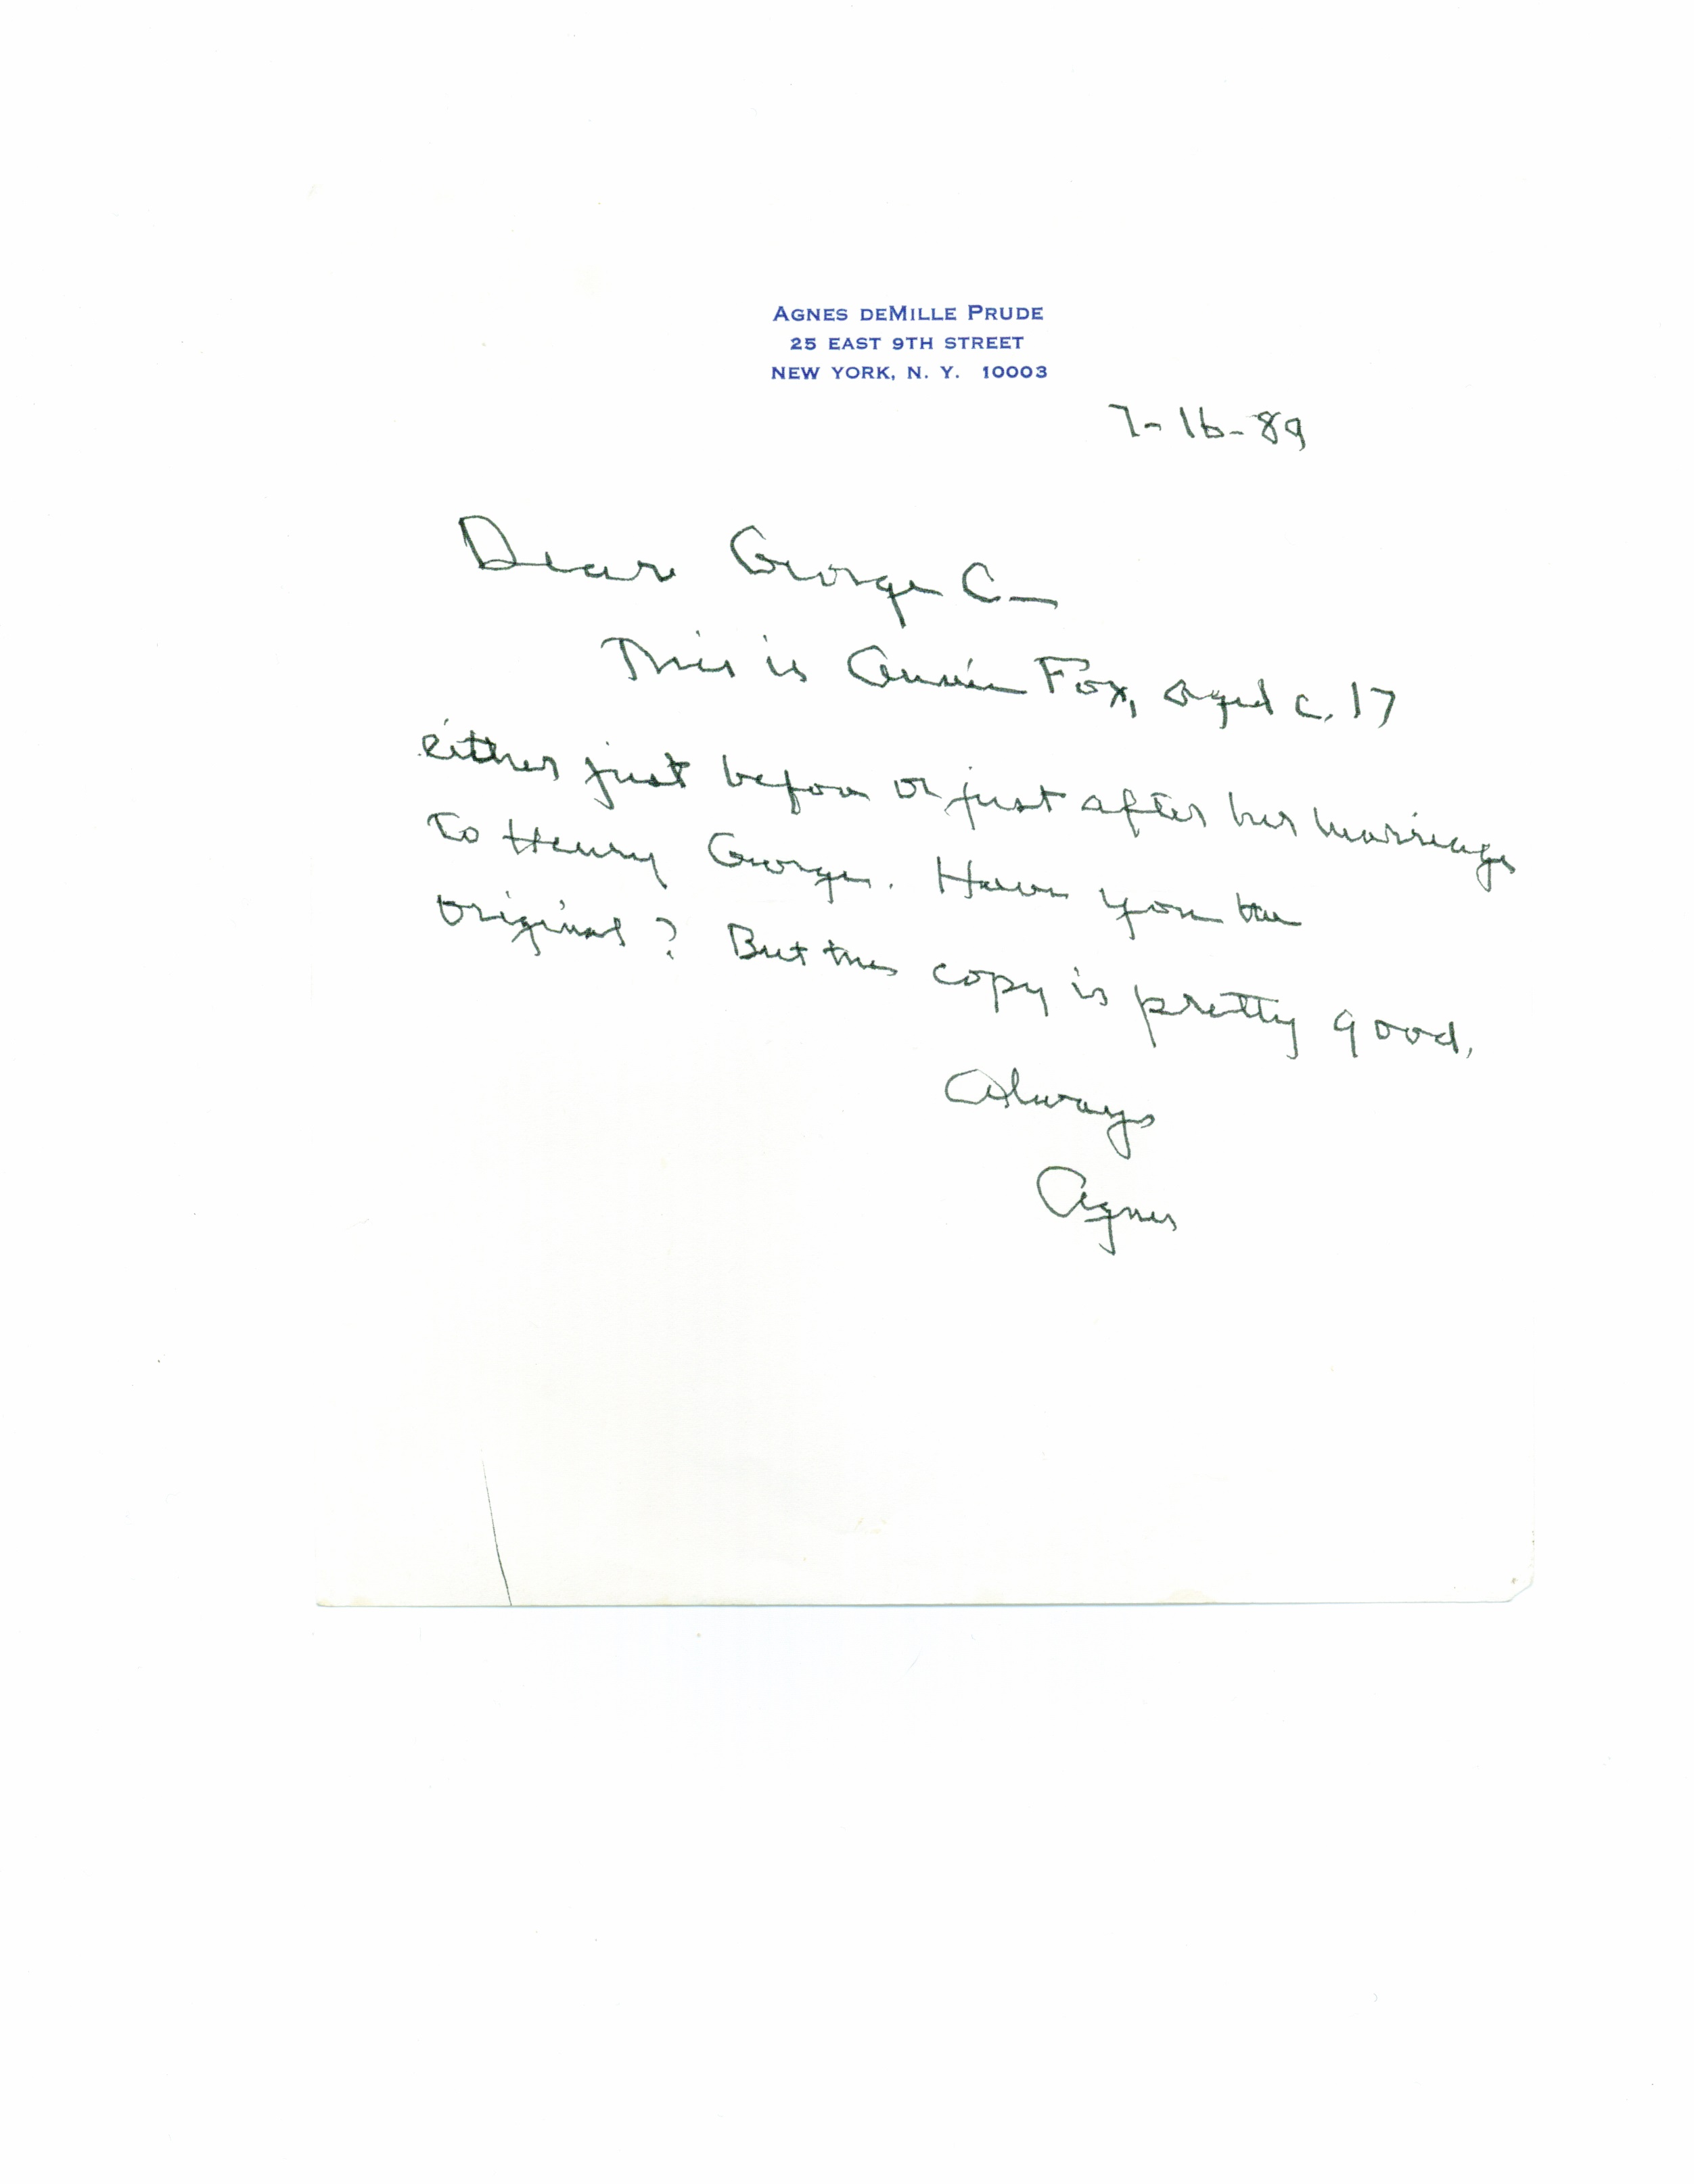 AGNES DEMILLE PRUDE
25 EAST 9TH STREET
NEW YORK, N. Y. 10003
7-16-89
Dear George C—
This is Annie Fox, aged c. 17
either just before or just after her marriage
to Henry George. Have you the
original? But this copy is pretty good.
Always
Agnes